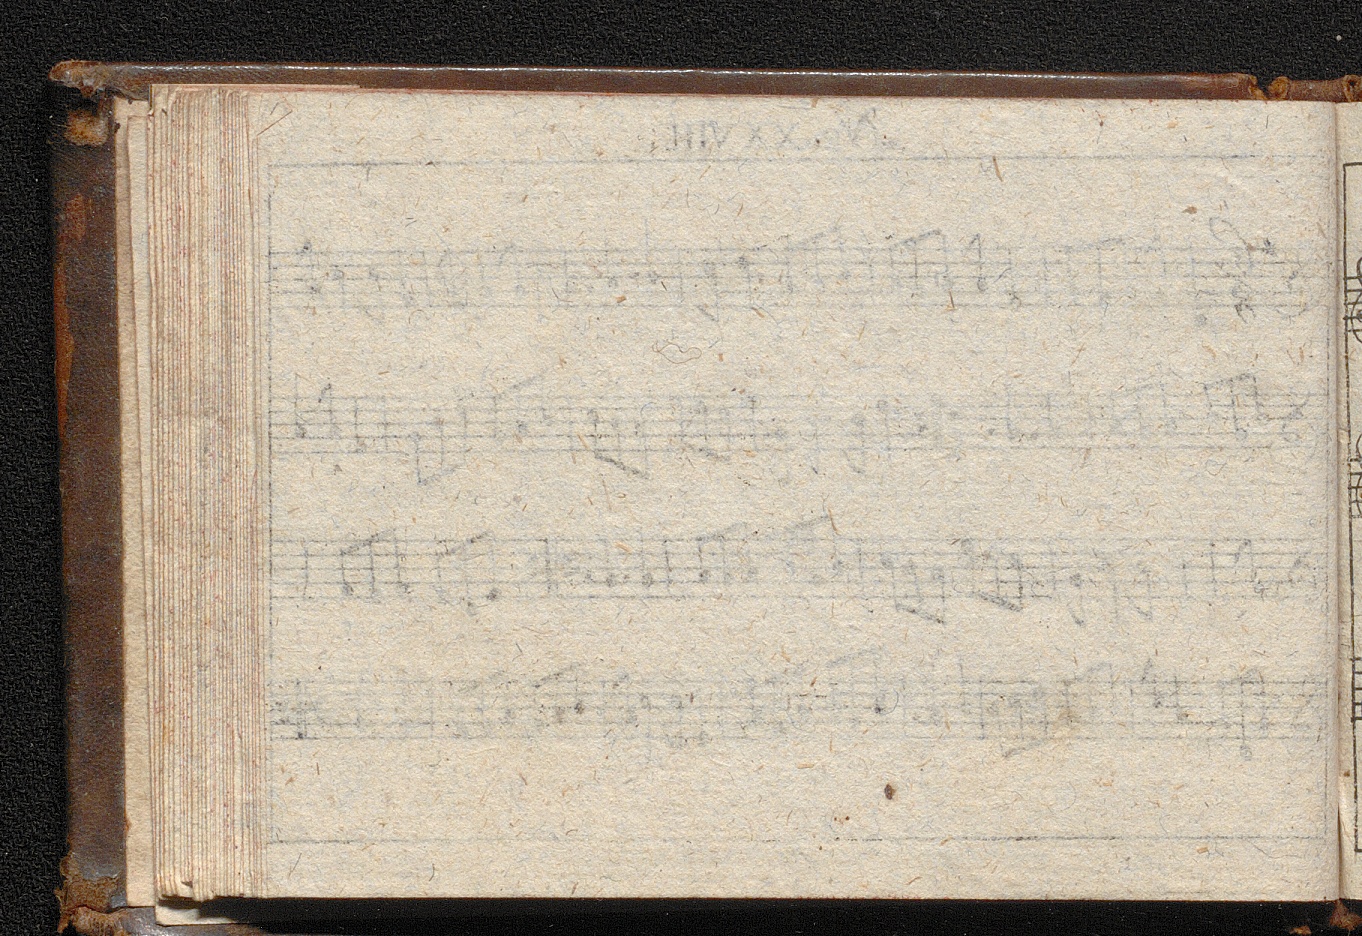 No. XXVIII.